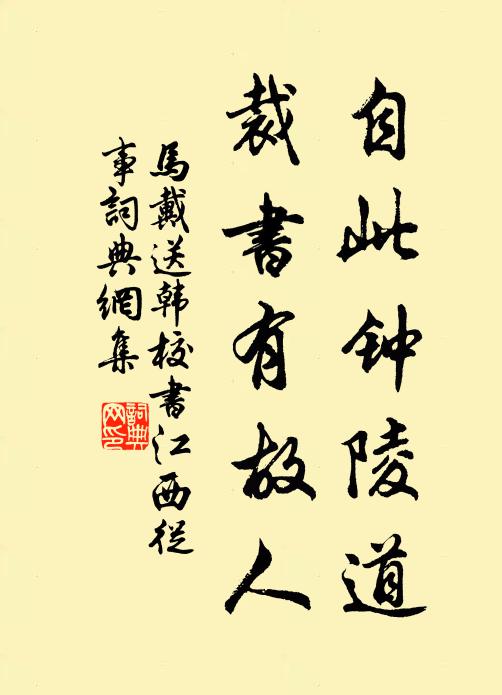 自此钟陵道
裁書有故人
馬戴送韩校書江西從
事詞典網集
詞典
网印